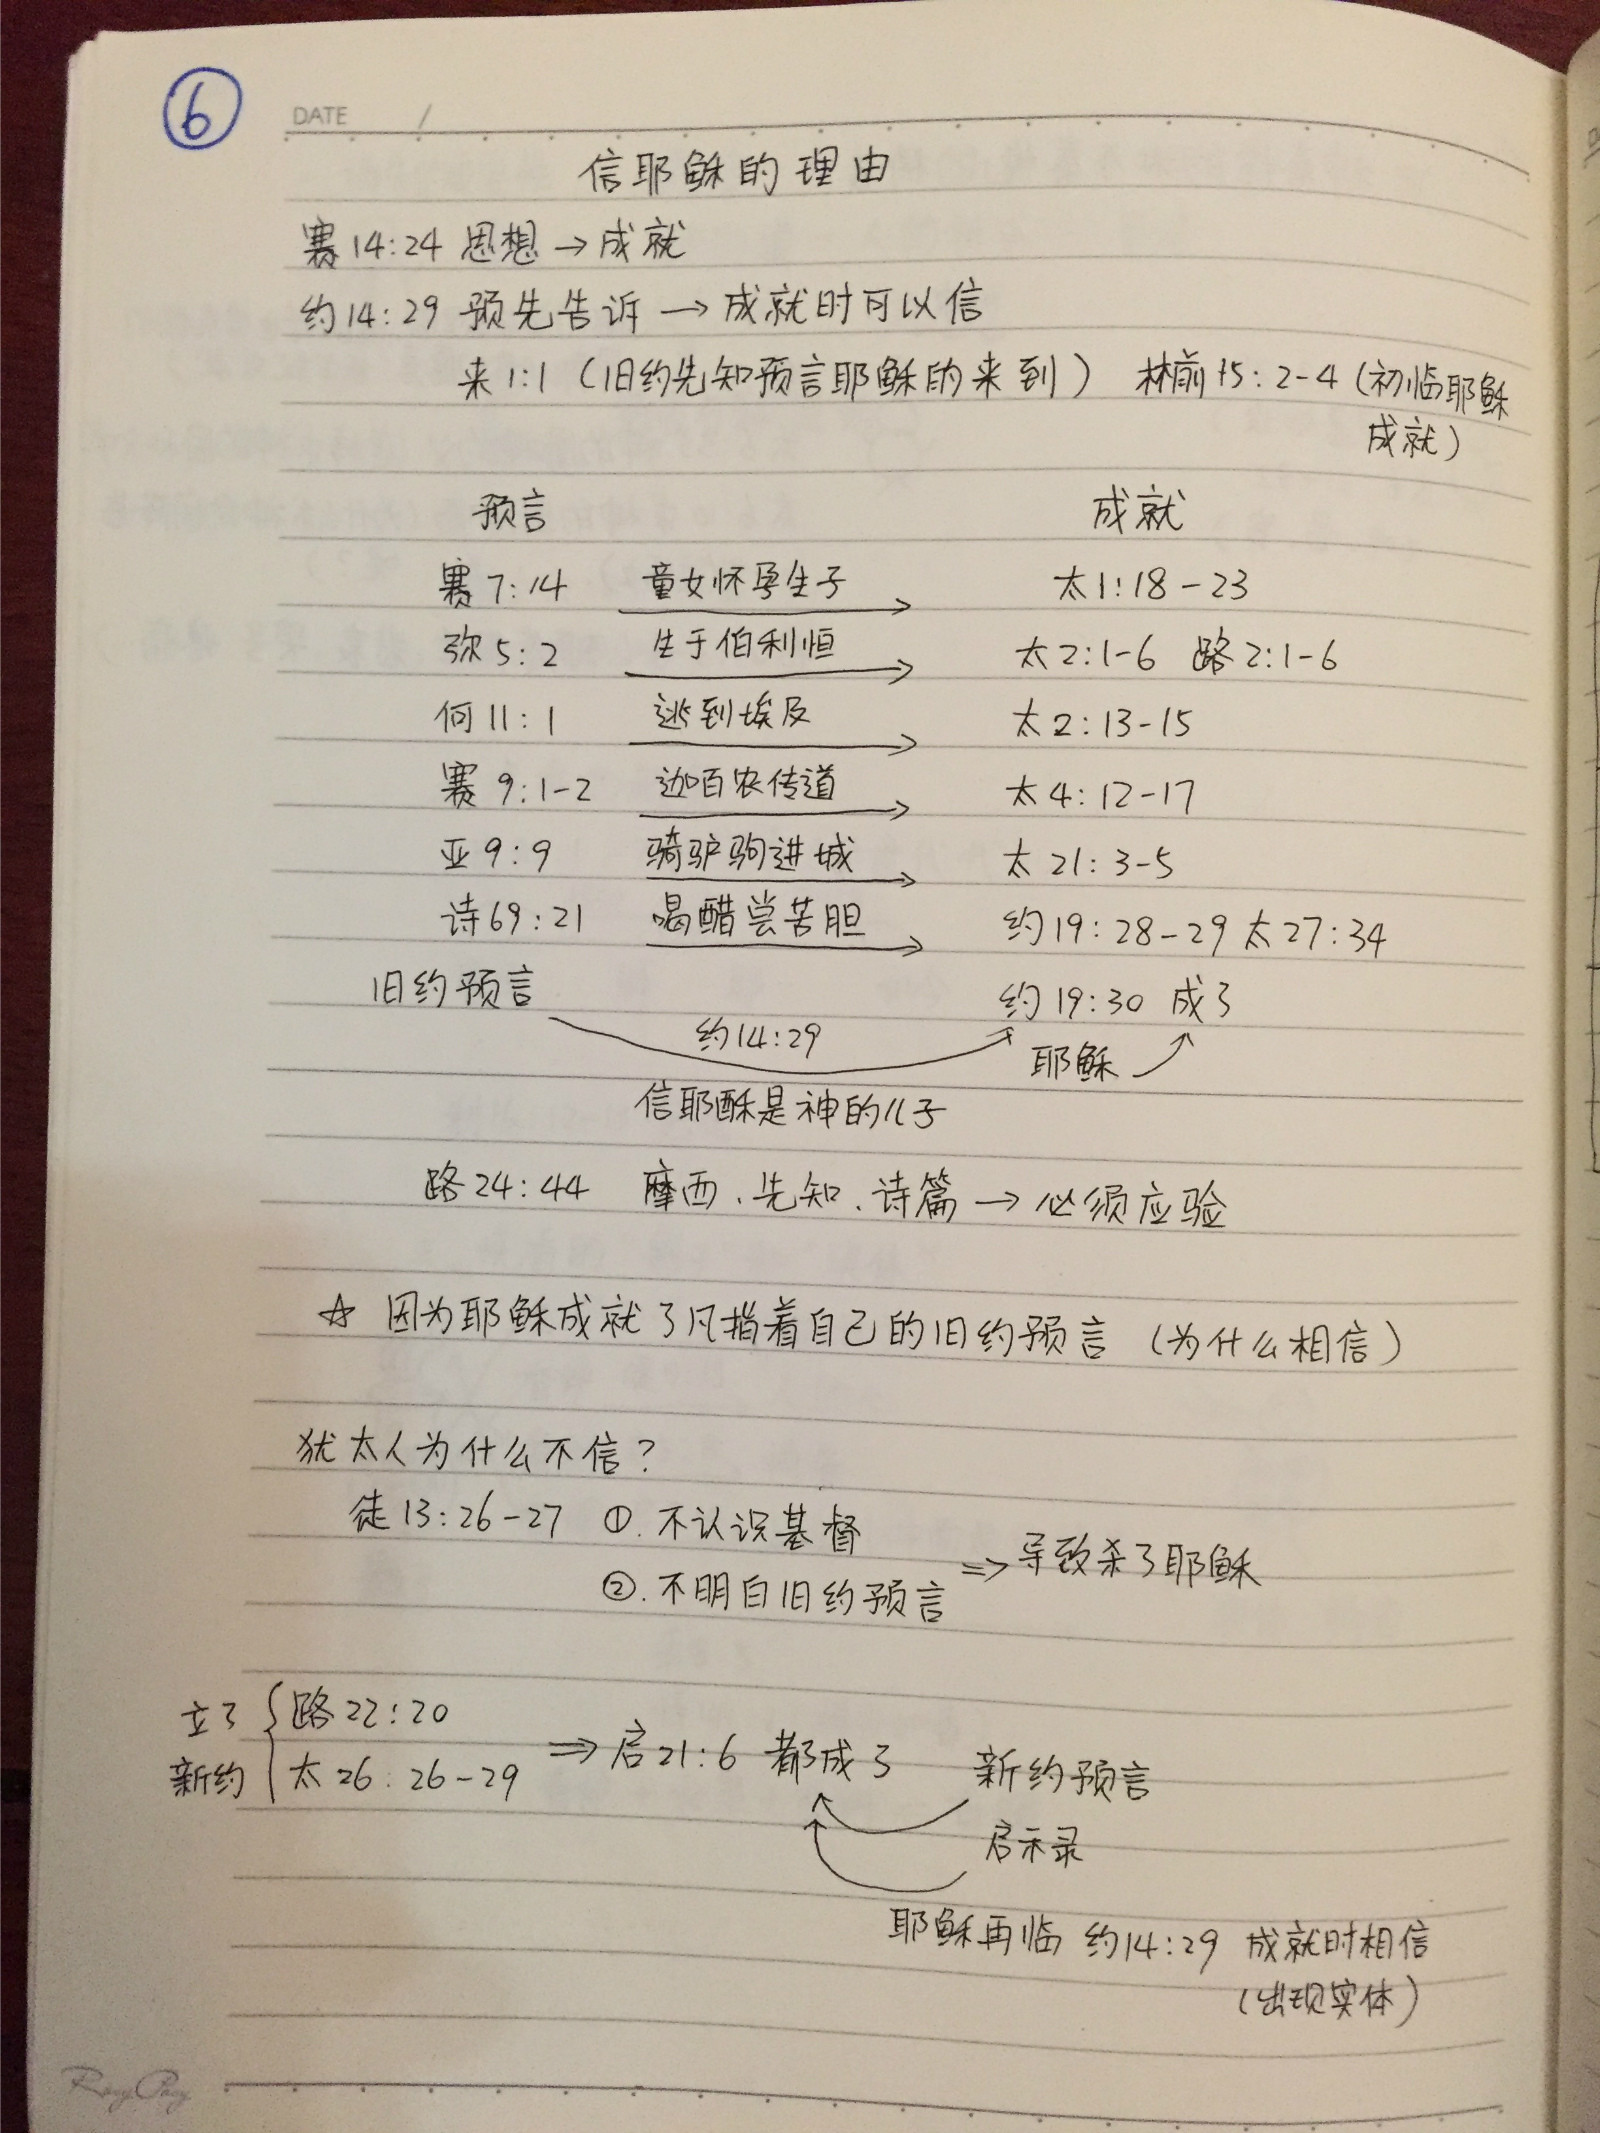 ⑥
DATE /
信耶稣的理由
赛14:24 思想→成就
约14:29 预先告诉→成就时可以信
来1:1（旧约先知预言耶稣的来到） 林前15:2-4（初临耶稣
成就）
预言 成就
赛7:14 童女怀孕生子 太1:18-23
弥5:2 生于伯利恒 太2:1-6 路2:1-6
何11:1 逃到埃及 太2:13-15
赛9:1-2 迦百农传道 太4:12-17
亚9:9 骑驴驹进城 太21:3-5
诗69:21 喝醋尝苦胆 约19:28-29 太27:34
旧约预言 约19:30 成了
约14:29 耶稣
信耶稣是神的儿子
路24:44 摩西、先知、诗篇→必须应验
☆ 因为耶稣成就了凡指着自己的旧约预言（为什么相信）
犹太人为什么不信?
徒13:26-27 ①.不认识基督
②.不明白旧约预言 ⇒导致杀了耶稣
立了 { 路22:20
新约 太26:26-29 ⇒启21:6 都成了 新约预言
启示录
耶稣再临 约14:29 成就时相信
（出现实体）